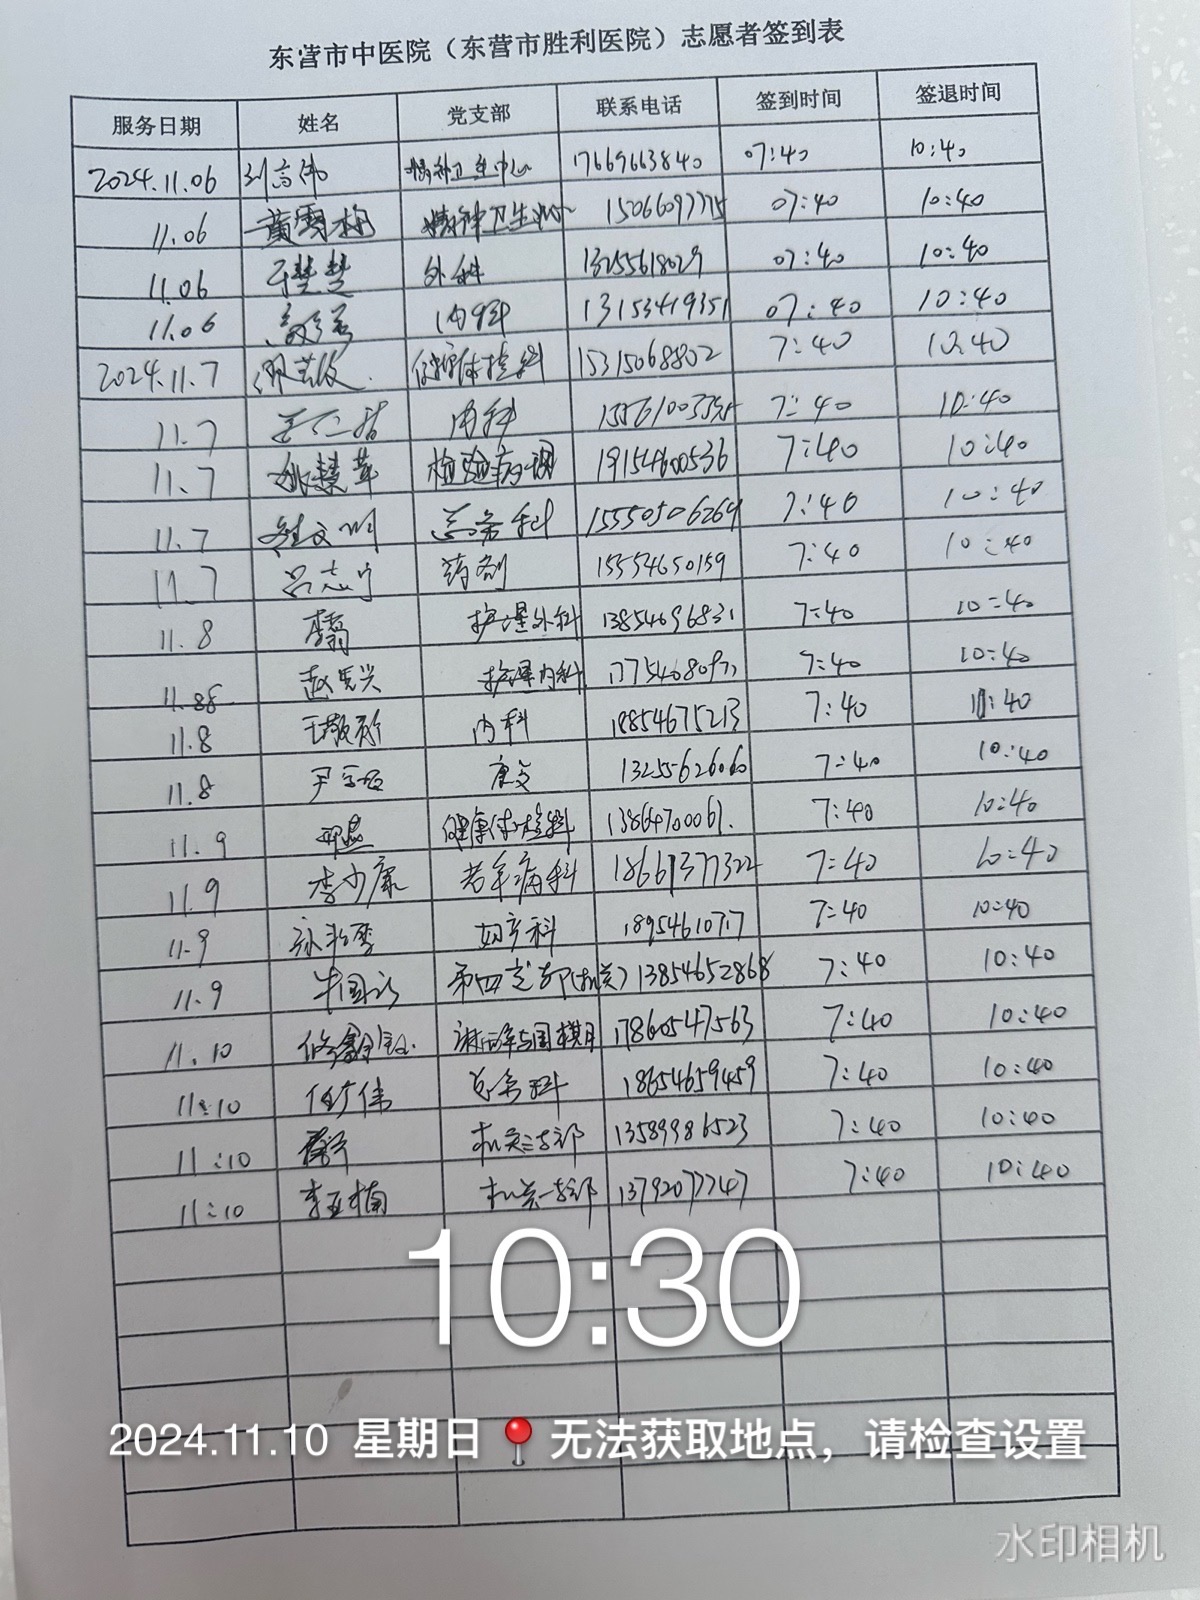 东营市中医院（东营市胜利医院）志愿者签到表
服务日期 姓名 党支部 联系电话 签到时间 签退时间
2024.11.06 刘高伟 精神卫生中心 17669663840 07:40 10:40
11.06 黄雪梅 精神卫生 15066097775 07:40 10:40
11.06 于楚楚 外科 13255618029 07:40 10:40
11.06 内科 13153419351 07:40 10:40
2024.11.7 健康体检科 15315068802 7:40 10:40
11.7 内科 7:40 10:40
11.7 姚慧苹 检验病理 19154600536 7:40 10:40
11.7 15550506269 7:40 10:40
11.7 吕志宁 药剂 15554650159 7:40 10:40
11.8 护理外科 13854696831 7:40 10:40
11.88 赵 兴 护理内科 7:40 10:40
11.8 王敬 内科 18854675213 7:40 10:40
11.8 尹 康复 13255626060 7:40 10:40
11.9 健康体检科 13864700061. 7:40 10:40
11.9 李少康 老年病科 18661377322 7:40 10:40
11.9 妇产科 18954610717 7:40 10:40
11.9 牛国 第四支部(机关) 13854652868 7:40 10:40
11.10 修鑫 17860547563 7:40 10:40
11:10 任广伟 总务科 18654659459 7:40 10:40
11:10 机关三支部 13589986523 7:40 10:40
11:10 李亚楠 机关一支部 13792077747 7:40 10:40
10:30
2024.11.10 星期日 无法获取地点，请检查设置
水印相机